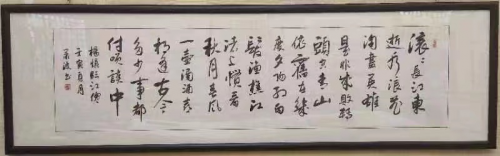 滚滚長江東
逝水浪花
淘盡英雄
是非成敗轉
頭空青山
依舊在幾
度夕陽紅白
髮漁樵江
渚上慣看
秋月春風
一壺濁酒喜
相逢古今
多少事都
付笑談中
楊慎臨江仙
壬寅夏月
波書